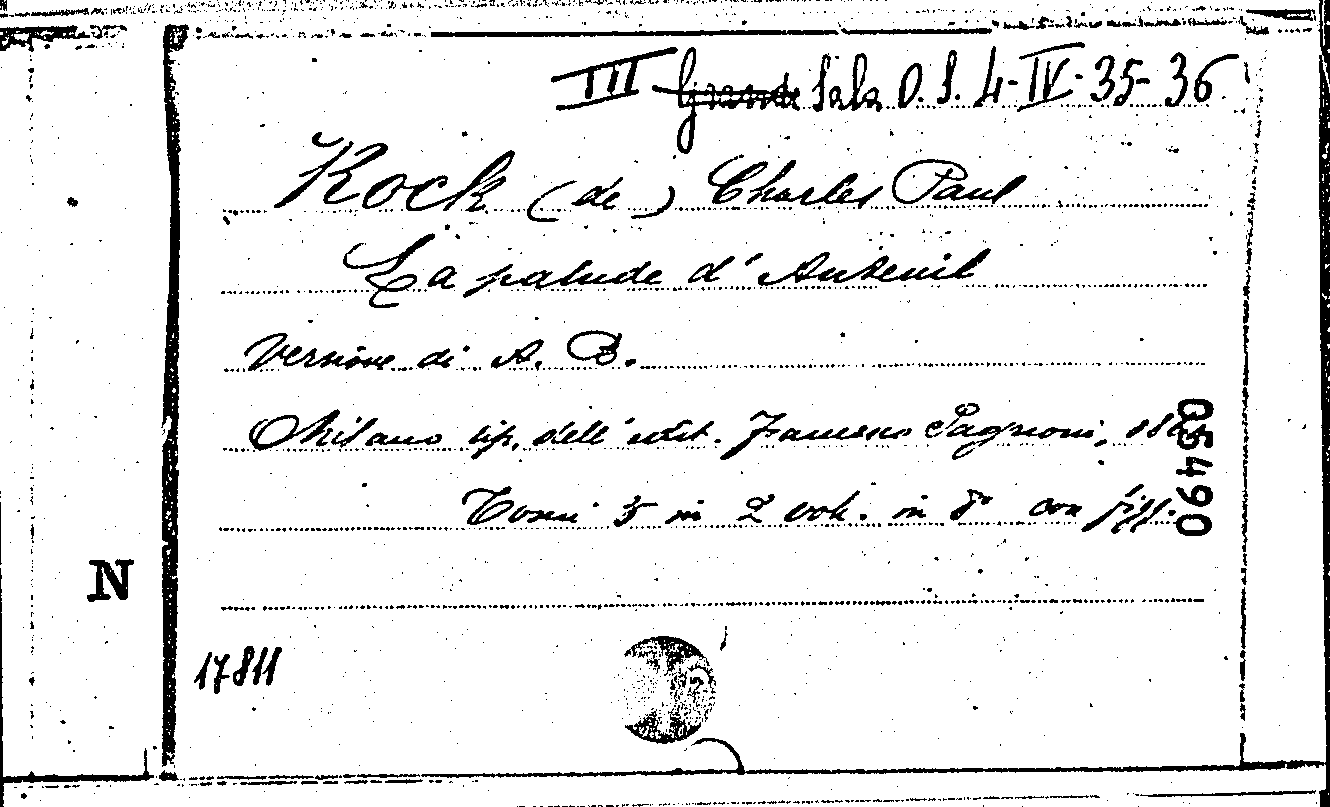 III Grande Sala D. S. 4-IV-35-36
Kock (de) Charles Paul
La palude d'Auteuil
Versione di A. B.
Milano tip. dell'edit. Francesco Pagnoni,
Tomi 5 in 2 vol. in 8° con figg.
05490
N
17811